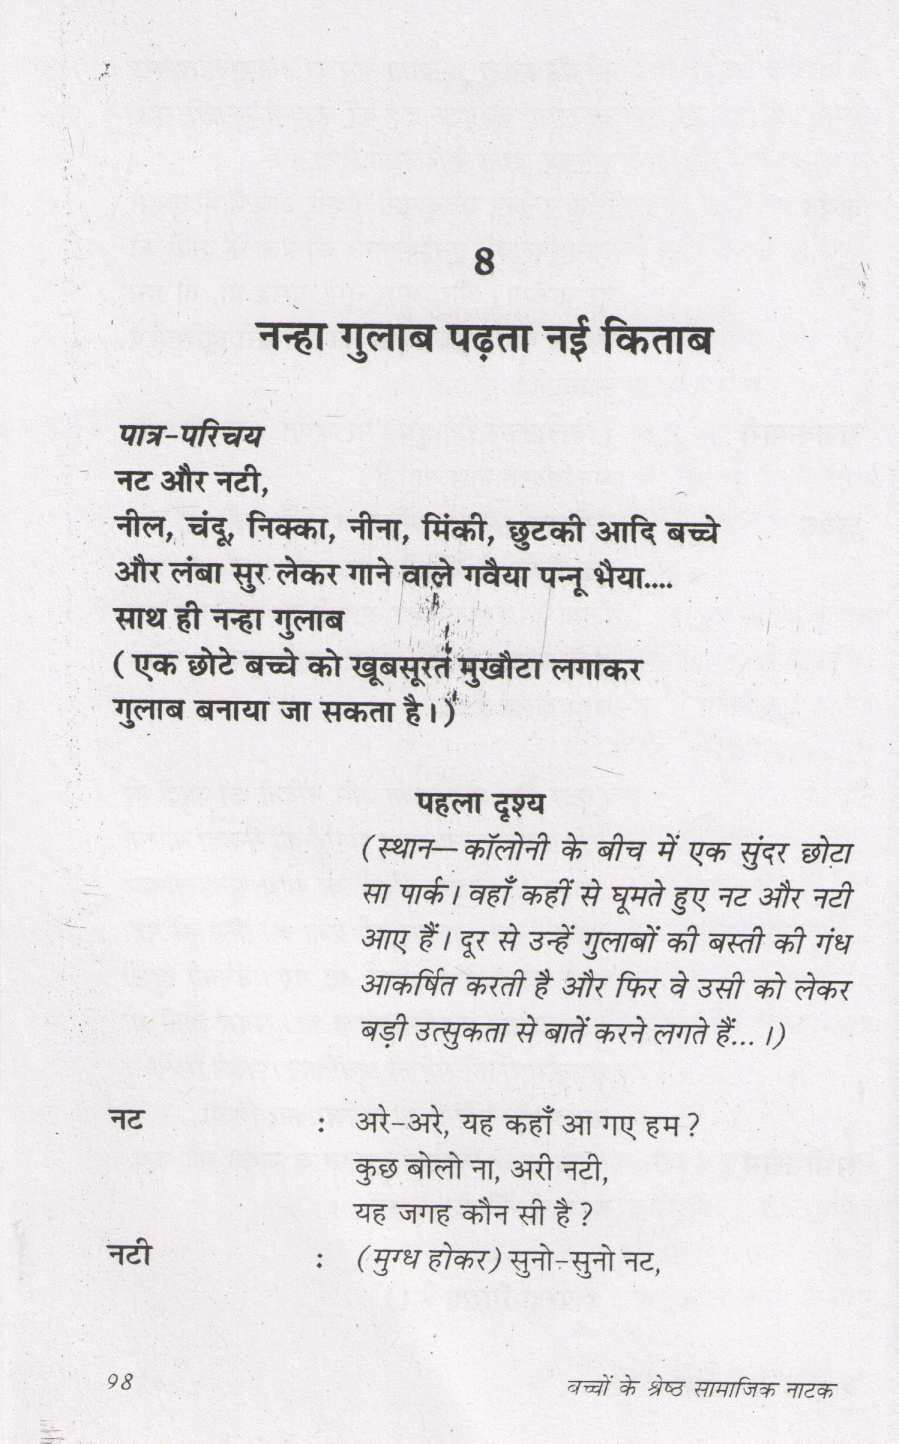 8
नन्हा गुलाब पढ़ता नई किताब
पात्र-परिचय
नट और नटी,
नील, चंदू, निक्का, नीना, मिंकी, छुटकी आदि बच्चे
और लंबा सुर लेकर गाने वाले गवैया पन्नू भैया....
साथ ही नन्हा गुलाब
(एक छोटे बच्चे को खूबसूरत मुखौटा लगाकर
गुलाब बनाया जा सकता है।)
पहला दृश्य
(स्थान—कॉलोनी के बीच में एक सुंदर छोटा
सा पार्क। वहाँ कहीं से घूमते हुए नट और नटी
आए हैं। दूर से उन्हें गुलाबों की बस्ती की गंध
आकर्षित करती है और फिर वे उसी को लेकर
बड़ी उत्सुकता से बातें करने लगते हैं...।)
नट : अरे-अरे, यह कहाँ आ गए हम?
कुछ बोलो ना, अरी नटी,
यह जगह कौन सी है?
नटी : (मुग्ध होकर) सुनो-सुनो नट,
98 बच्चों के श्रेष्ठ सामाजिक नाटक